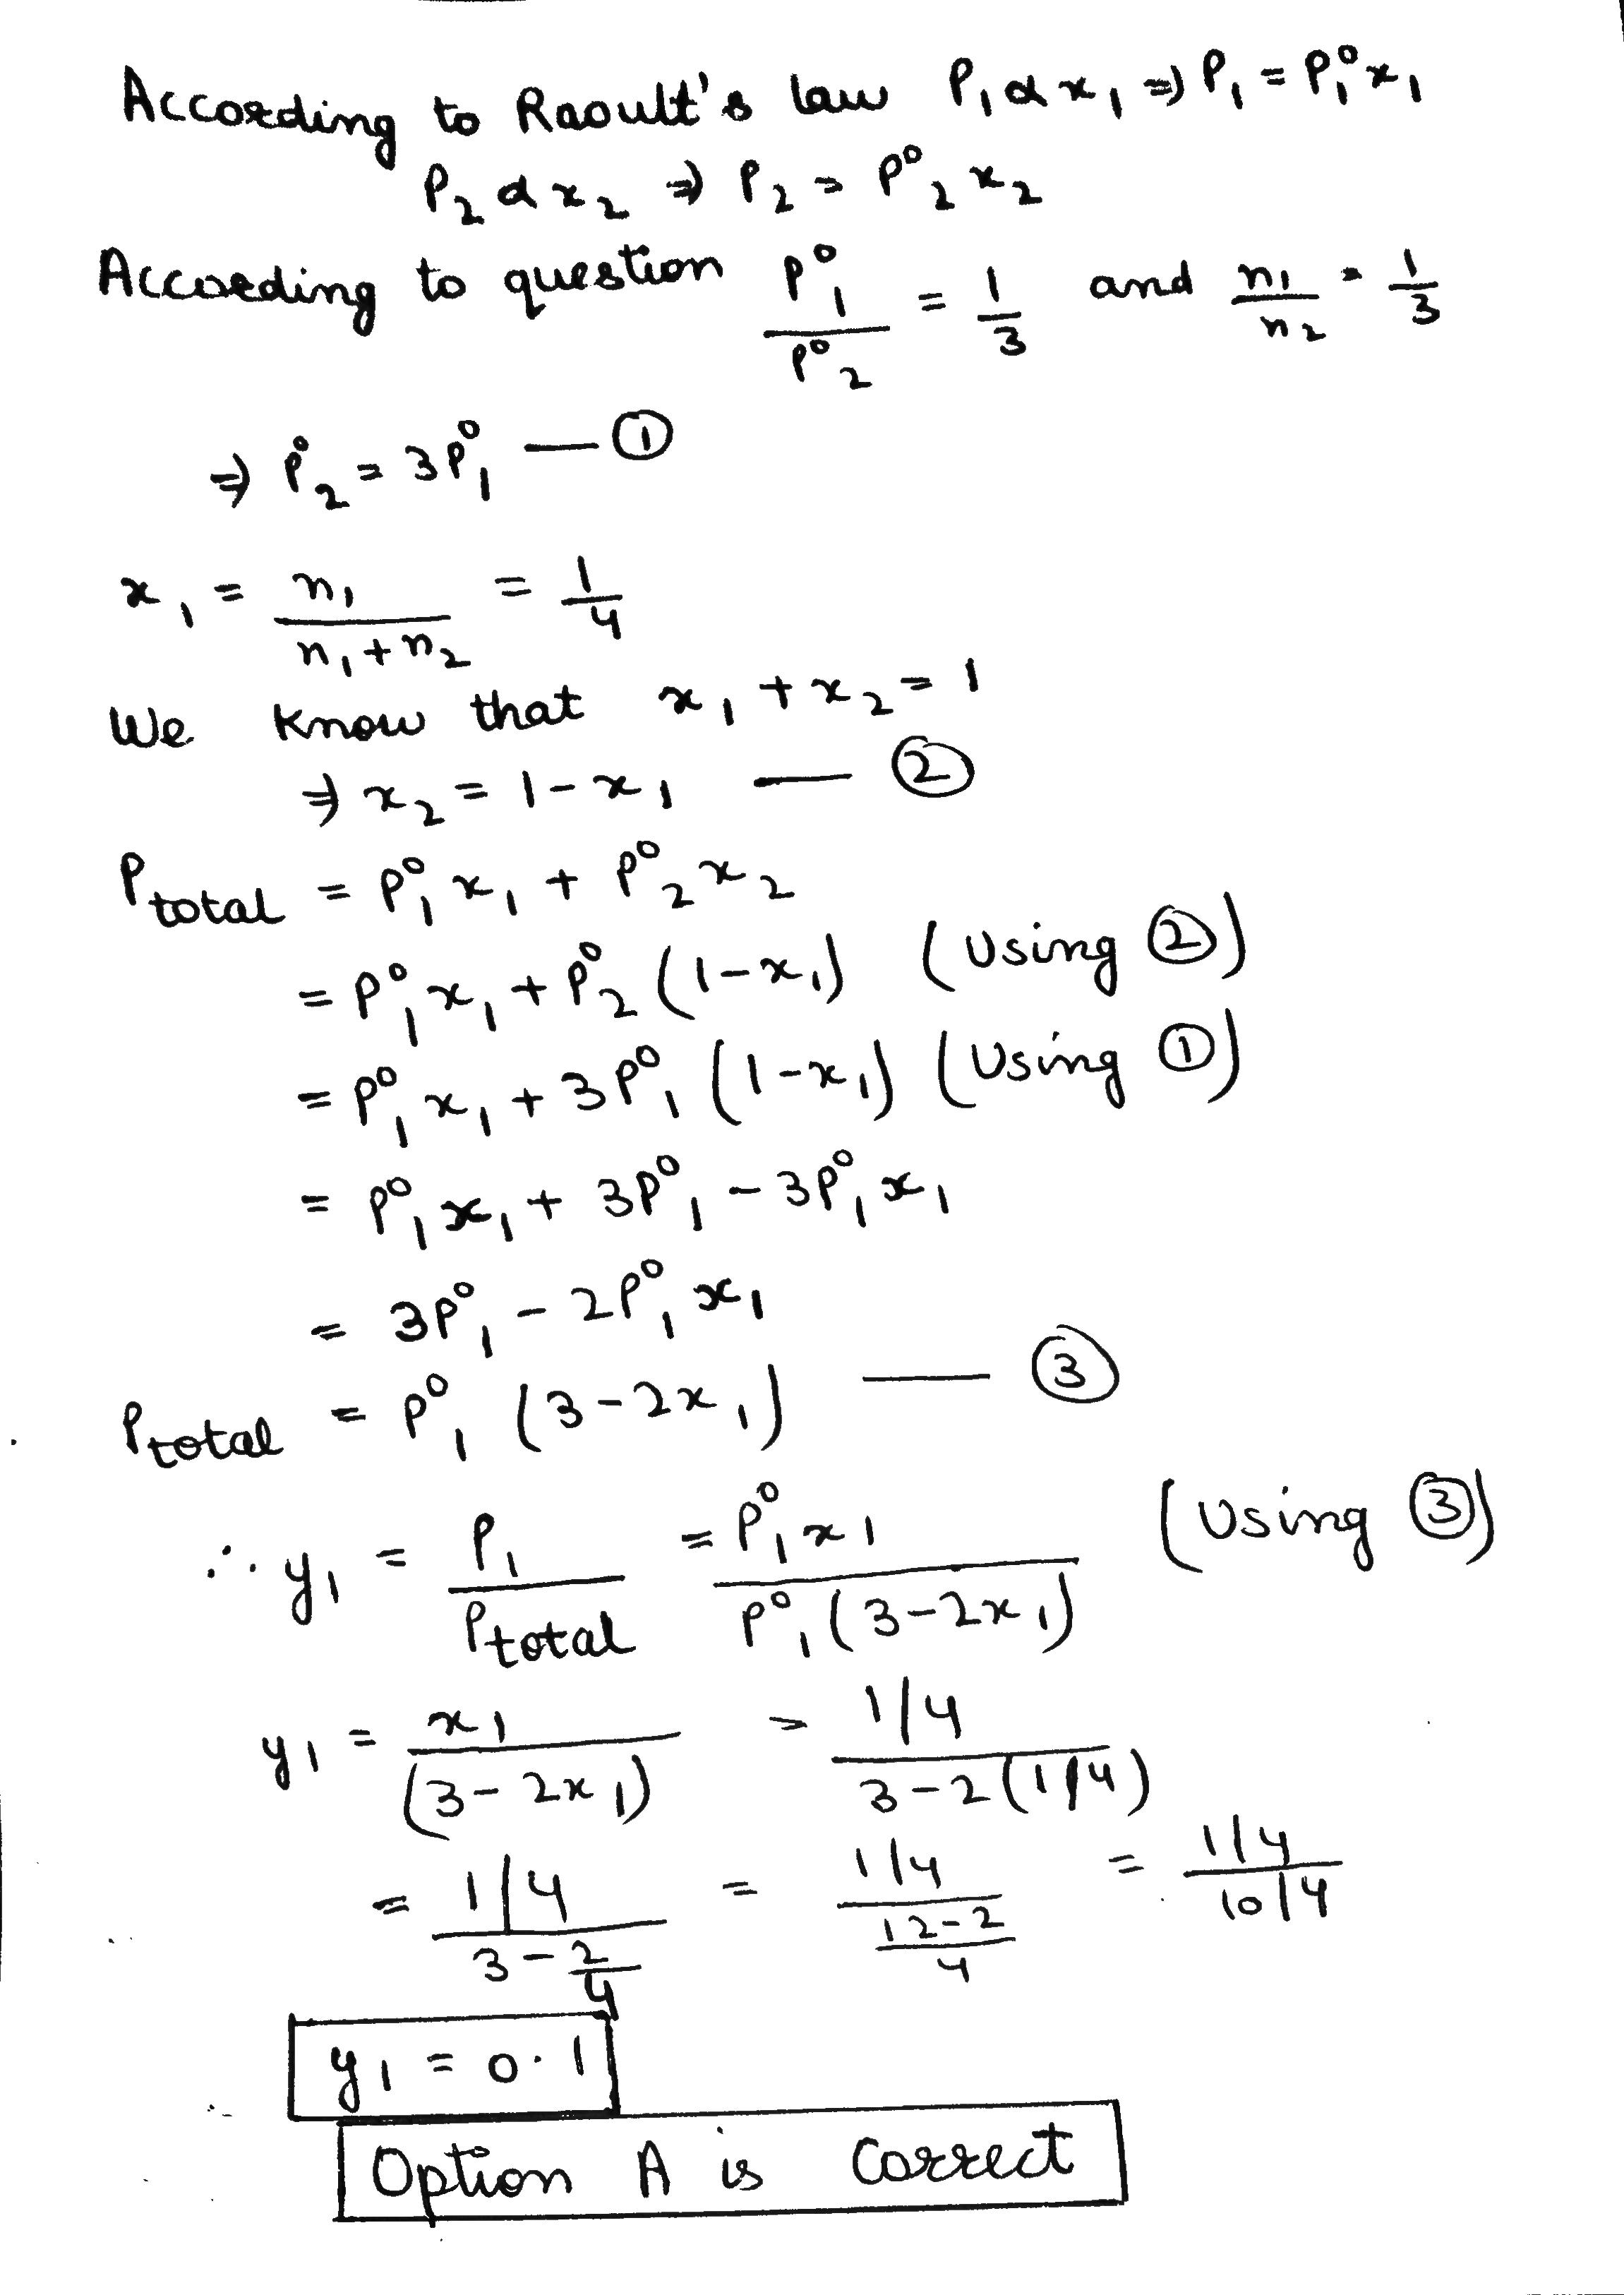 According to Raoult's law P₁ α x₁ ⇒ P₁ = P₁⁰x₁
P₂ α x₂ ⇒ P₂ = P⁰₂ x₂
According to question P⁰₁/P⁰₂ = 1/3 and n₁/n₂ = 1/3
⇒ P⁰₂ = 3P⁰₁ — ①
x₁ = n₁/(n₁+n₂) = 1/4
We know that x₁ + x₂ = 1
⇒ x₂ = 1 - x₁ — ②
Ptotal = P⁰₁ x₁ + P⁰₂ x₂
= P⁰₁ x₁ + P⁰₂ (1-x₁) (Using ②)
= P⁰₁ x₁ + 3P⁰₁ (1-x₁) (Using ①)
= P⁰₁ x₁ + 3P⁰₁ - 3P⁰₁ x₁
= 3P⁰₁ - 2P⁰₁ x₁
Ptotal = P⁰₁ (3-2x₁) — ③
∴ y₁ = P₁/Ptotal = P⁰₁ x₁/P⁰₁(3-2x₁) (Using ③)
y₁ = x₁/(3-2x₁) = 1/4/3-2(1/4)
= 1/4/3-2/4 = 1/4/12-2/4 = 1/4/10/4
y₁ = 0.1
Option A is correct